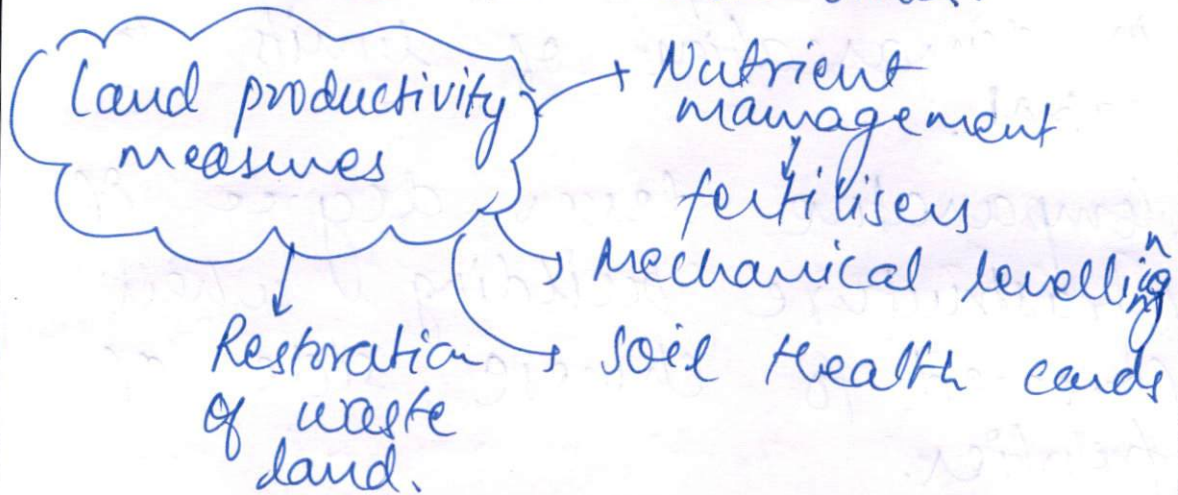 Land productivity
measures
Nutrient
management
fertilisers
Mechanical levelling
Soil Health cards
Restoration
of waste
land.